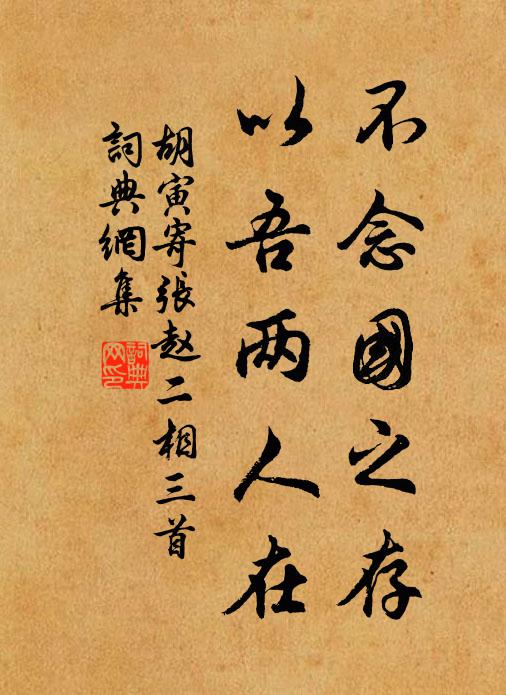 不念國之存
以吾两人在
胡寅寄張赵二相三首
詞典網集
詞典网印